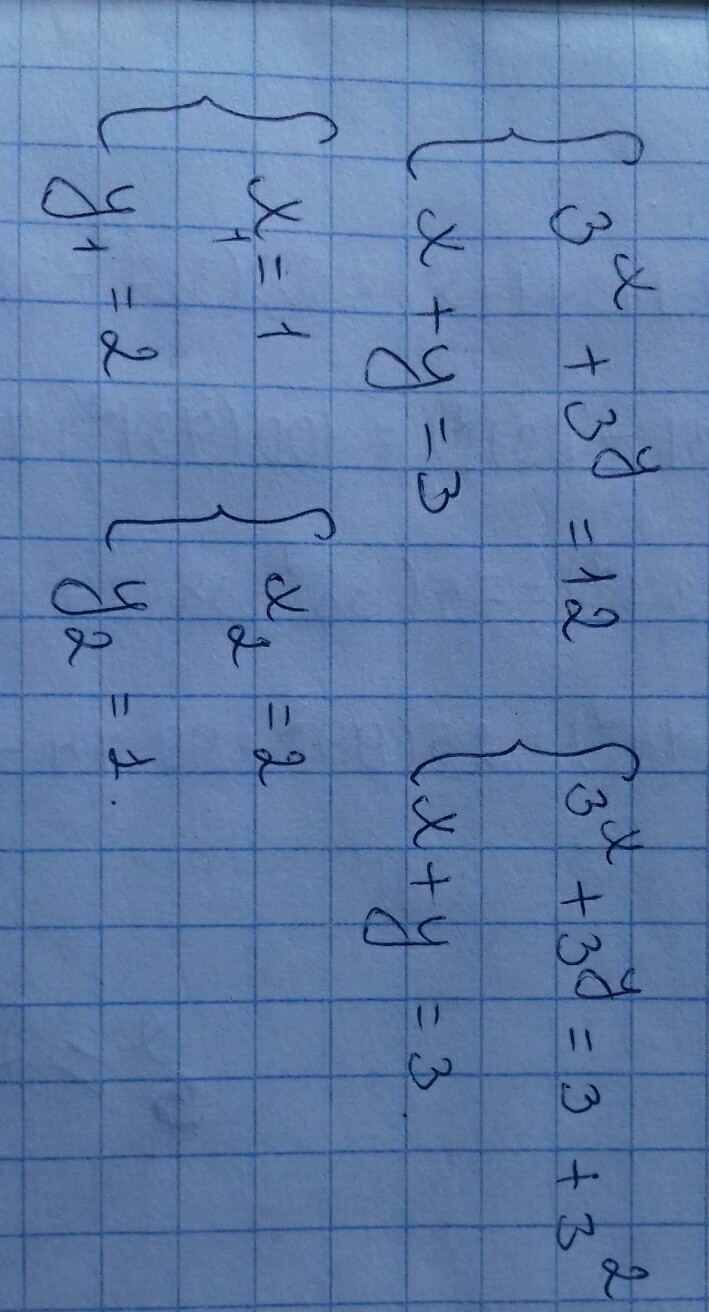 3^x + 3^y = 12
x + y = 3
3^x + 3^y = 3 + 3^2
x + y = 3
x₁ = 1
y₁ = 2
x₂ = 2
y₂ = 1.